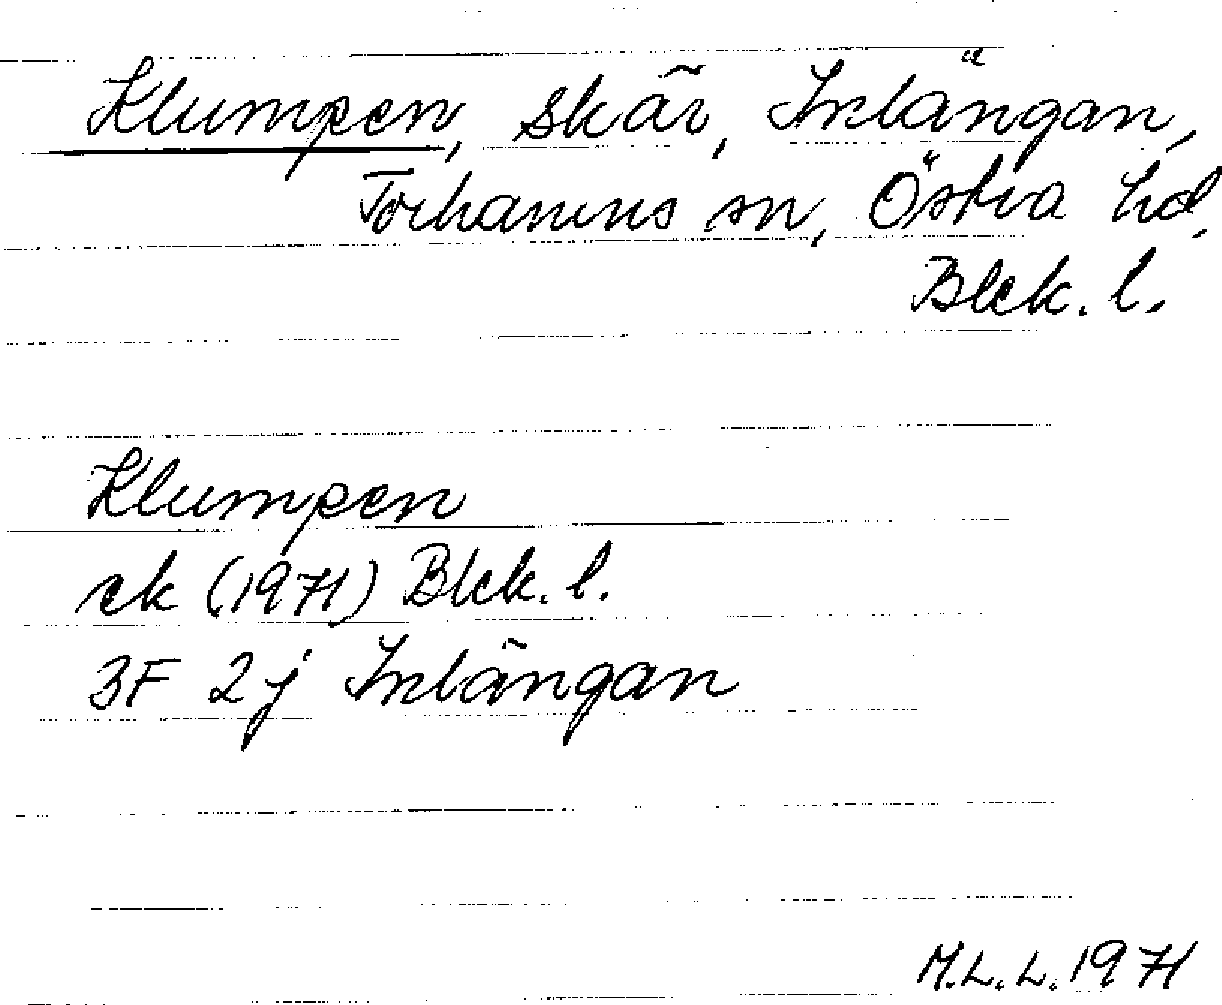 Klumpen, skär, Inlängan,
Torhamns sn, Östra hd,
Blek. l.
Klumpen
ek (1971) Blek. l.
3F 2j Inlängan
M.L.L. 1971